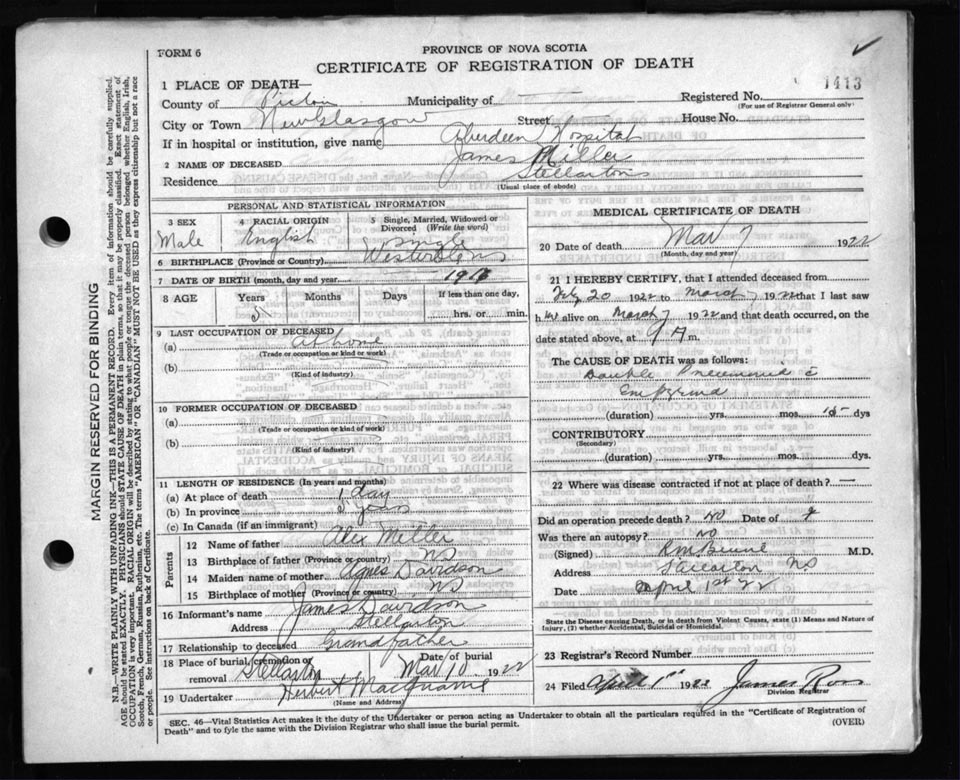 FORM 6
PROVINCE OF NOVA SCOTIA
CERTIFICATE OF REGISTRATION OF DEATH
1413
1 PLACE OF DEATH—
County of Pictou Municipality of Registered No.
(For use of Registrar General only)
City or Town New Glasgow Street House No.
If in hospital or institution, give name Aberdeen Hospital
2 NAME OF DECEASED James Miller
Residence Stellarton
(Usual place of abode)
PERSONAL AND STATISTICAL INFORMATION
3 SEX 4 RACIAL ORIGIN 5 Single, Married, Widowed or Divorced (Write the word)
Male English Single
6 BIRTHPLACE (Province or Country) Westville NS
7 DATE OF BIRTH (month, day and year) 1916
8 AGE Years Months Days If less than one day,
5 hrs. or min.
9 LAST OCCUPATION OF DECEASED
(a) at home
(Trade or occupation or kind or work)
(b)
(Kind of industry)
10 FORMER OCCUPATION OF DECEASED
(a)
(Trade or occupation or kind of work)
(b)
(Kind of industry)
11 LENGTH OF RESIDENCE (In years and months)
(a) At place of death 1 day
(b) In province 5 years
(c) In Canada (if an immigrant)
Parents
12 Name of father Alex Miller
13 Birthplace of father (Province or country) NS
14 Maiden name of mother Agnes Davidson
15 Birthplace of mother (Province or country) NS
16 Informant's name James Davidson
Address Stellarton
17 Relationship to deceased Grandfather
18 Place of burial, cremation or removal Stellarton Date of burial Mar 10 1922
19 Undertaker Herbert
(Name and Address)
MEDICAL CERTIFICATE OF DEATH
20 Date of death Mar 7 1922
(Month, day and year)
21 I HEREBY CERTIFY, that I attended deceased from
Feby 20 1922 to March 7 1922 that I last saw
him alive on March 7 1922 and that death occurred, on the
date stated above, at 9 A m.
The CAUSE OF DEATH was as follows:
Double Pneumonia c̄
Empyema
(duration) yrs. mos. 15 dys
CONTRIBUTORY
(Secondary)
(duration) yrs. mos. dys.
22 Where was disease contracted if not at place of death? —
Did an operation precede death? No Date of
Was there an autopsy? No
(Signed) M.D.
Address Stellarton NS
Date April 1st 22
State the Disease causing Death, or in death from Violent Causes, state (1) Means and Nature of
Injury, (2) whether Accidental, Suicidal or Homicidal.
23 Registrar's Record Number
24 Filed April 1st 1922 James Ross
Division Registrar
SEC. 46—Vital Statistics Act makes it the duty of the Undertaker or person acting as Undertaker to obtain all the particulars required in the "Certificate of Registration of
Death" and to fyle the same with the Division Registrar who shall issue the burial permit.
(OVER)
MARGIN RESERVED FOR BINDING
N.B.—WRITE PLAINLY WITH UNFADING INK—THIS IS A PERMANENT RECORD. Every item of information should be carefully supplied.
AGE should be stated EXACTLY. PHYSICIANS should STATE CAUSE OF DEATH in plain terms, so that it may be properly classified. Exact statement of
OCCUPATION is very important. RACIAL ORIGIN will be described by stating to what people or tongue the deceased person belonged whether English, Irish,
Scotch, French, German, Russian, Ruthenian, etc. The terms "AMERICAN" or "CANADIAN" MUST NOT BE USED as they express citizenship but not a race
or people. See instructions on back of Certificate.